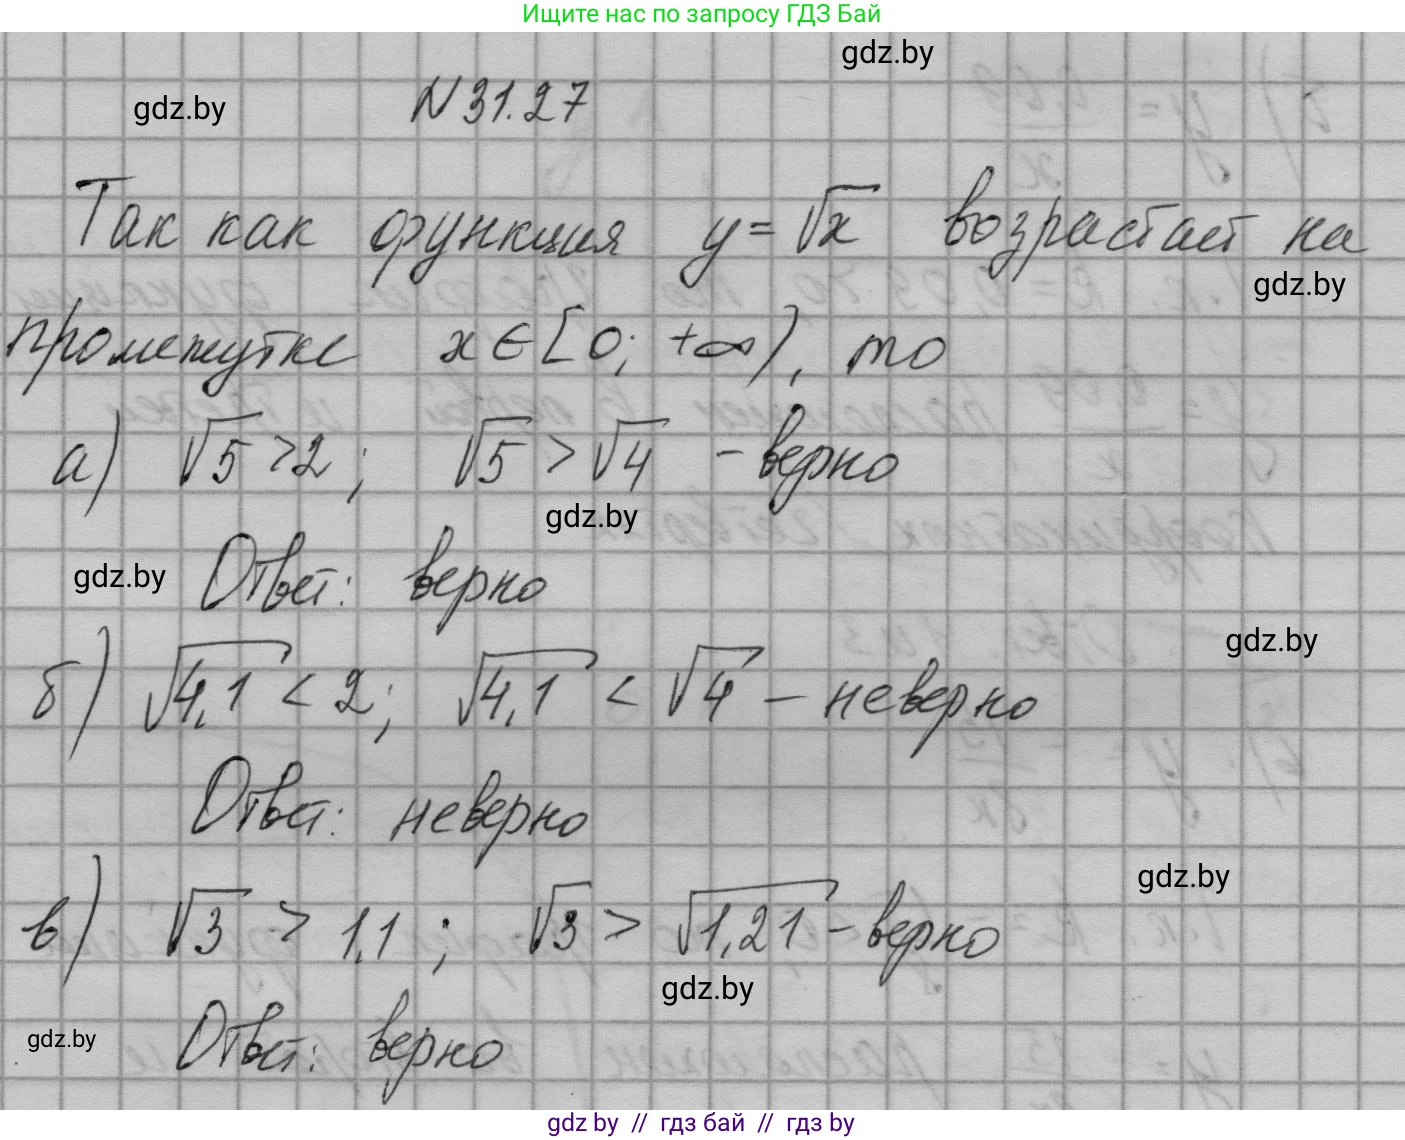 Ищите нас по запросу ГДЗ Бай
gdz.by
gdz.by
N 31.27
Так как функция y = √x возрастает на
gdz.by
промежутке x ∈ [0; +∞), то
а) √5 > 2; √5 > √4 - верно
gdz.by
gdz.by
Ответ: верно
gdz.by
б) √4,1 < 2; √4,1 < √4 - неверно
Ответ: неверно
gdz.by
в) √3 > 1,1; √3 > √1,21 - верно
gdz.by
gdz.by
Ответ: верно
gdz by // гдз бай // гдз by